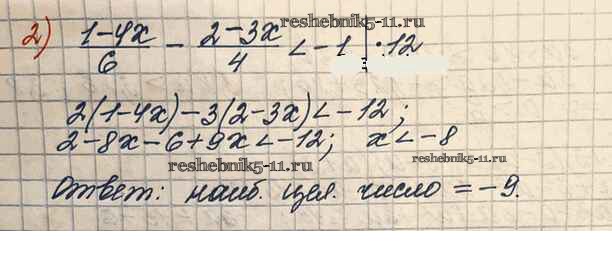 reshebnik5-11.ru
2) (1-4x)/6 - (2-3x)/4 < -1 | :12
2(1-4x)-3(2-3x)<-12;
2-8x-6+9x<-12; x<-8
reshebnik5-11.ru reshebnik5-11.ru
Ответ: наиб. цел. число = -9.